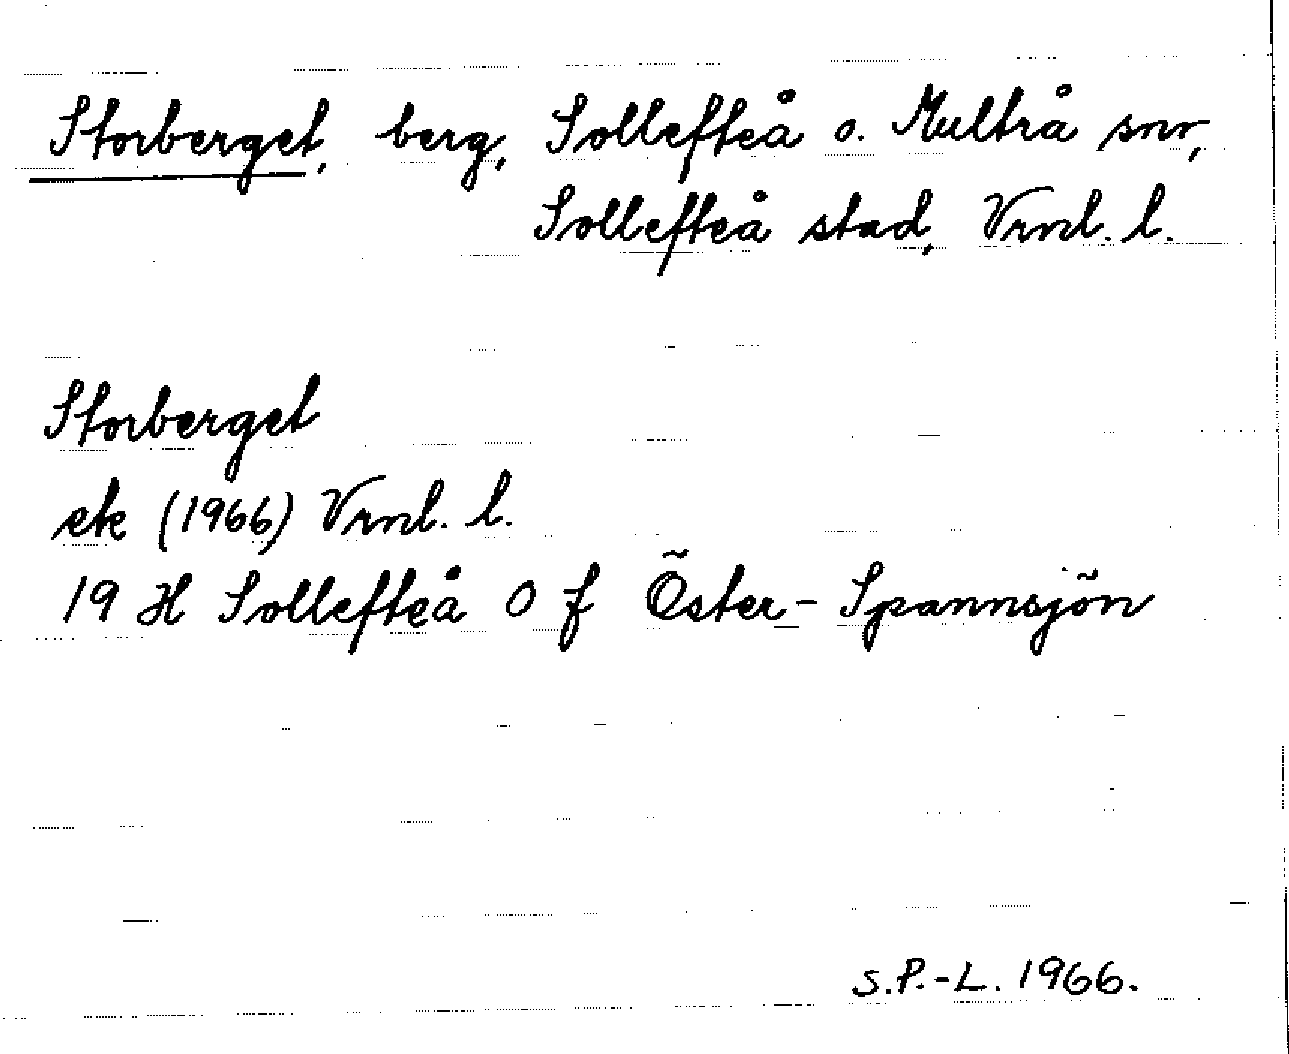 Storberget, berg, Sollefteå o. Multrå snr,
Sollefteå stad, Vrnl. l.
Storberget
ek (1966) Vrnl. l.
19 H Sollefteå O f Öster-Spannsjön
S.P.-L. 1966.